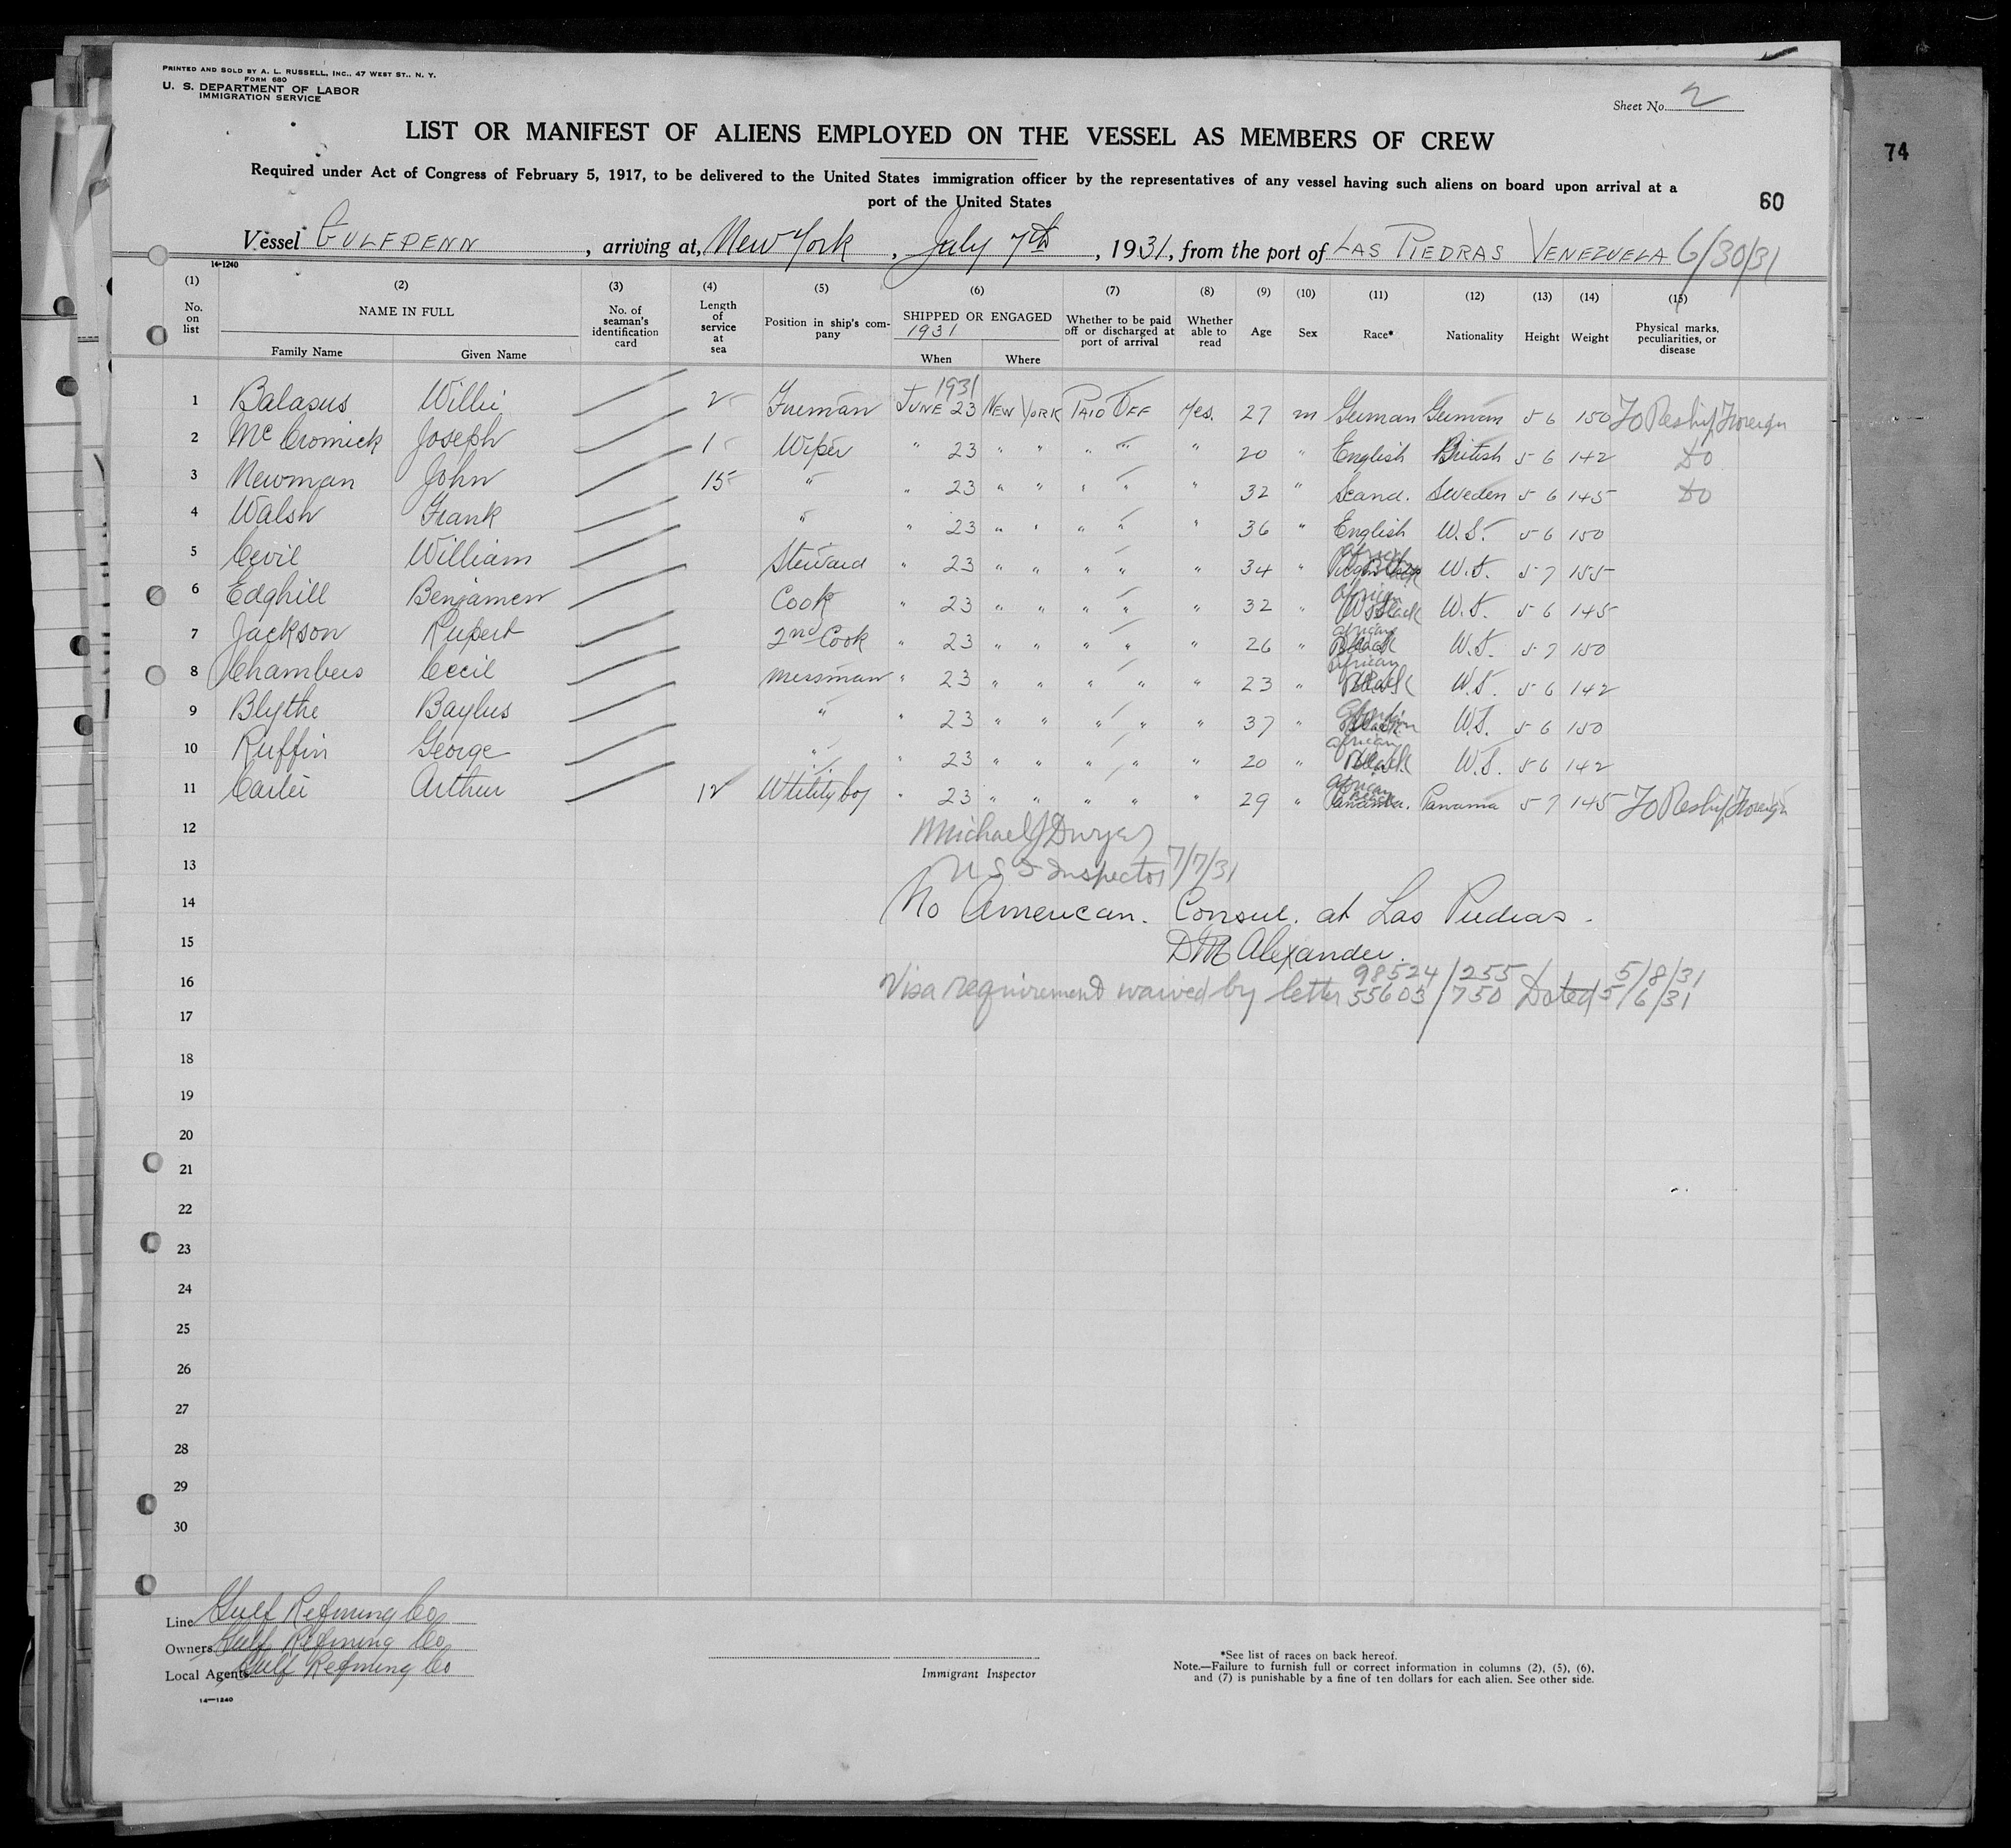 PRINTED AND SOLD BY A. L. RUSSELL, INC., 47 WEST ST., N. Y.
FORM 680
U. S. DEPARTMENT OF LABOR
IMMIGRATION SERVICE
Sheet No. 2
74
LIST OR MANIFEST OF ALIENS EMPLOYED ON THE VESSEL AS MEMBERS OF CREW
Required under Act of Congress of February 5, 1917, to be delivered to the United States immigration officer by the representatives of any vessel having such aliens on board upon arrival at a
port of the United States
60
Vessel GULFPENN, arriving at, New York, July 7th, 1931, from the port of LAS PIEDRAS VENEZUELA 6/30/31
14-1240
(1) (2) (3) (4) (5) (6) (7) (8) (9) (10) (11) (12) (13) (14) (15)
No. on list NAME IN FULL No. of seaman's identification card Length of service at sea Position in ship's company SHIPPED OR ENGAGED 1931 Whether to be paid off or discharged at port of arrival Whether able to read Age Sex Race* Nationality Height Weight Physical marks, peculiarities, or disease
Family Name Given Name When Where
1931
1 Balasus Willi 2 Fireman JUNE 23 NEW YORK PAID OFF Yes. 27 m German German 5 6 150 To Reship Foreign
2 McCromick Joseph 1 Wiper " 23 " " " " " 20 " English British 5 6 142 DO
3 Newman John 15 " " 23 " " " " " 32 " Scand. Sweden 5 6 145 DO
4 Walsh Frank " " 23 " " " " " 36 " English W.S. 5 6 150
5 Cevil William Steward " 23 " " " " " 34 " African W.I. 5 7 155
6 Edghill Benjamen Cook " 23 " " " " " 32 " African W.I. 5 6 145
7 Jackson Rupert 2nd Cook " 23 " " " " " 26 " African Black W.I. 5 7 150
8 Chambers Cecil messman " 23 " " " " " 23 " African Black W.I. 5 6 142
9 Blythe Baylus " " 23 " " " " " 37 " Black W.I. 5 6 150
10 Ruffin George " " 23 " " " " " 20 " African Black W.S. 5 6 142
11 Carter Arthur 12 Utility boy " 23 " " " " " 29 " African Panama. Panama 5 7 145 To Reship Foreign
12 Michael J Dwyer
13 U S I Inspector 7/7/31
14 No American. Consul. at Las Piedras.
15 DM Alexander.
98524/255 5/8/31
16 Visa requirement waived by letter 55603/750 Dated 5/6/31
17
18
19
20
21
22
23
24
25
26
27
28
29
30
Line Gulf Refining Co
Owners Gulf Refining Co
Local Agents Gulf Refining Co
14-1240
Immigrant Inspector
*See list of races on back hereof.
Note.—Failure to furnish full or correct information in columns (2), (5), (6),
and (7) is punishable by a fine of ten dollars for each alien. See other side.